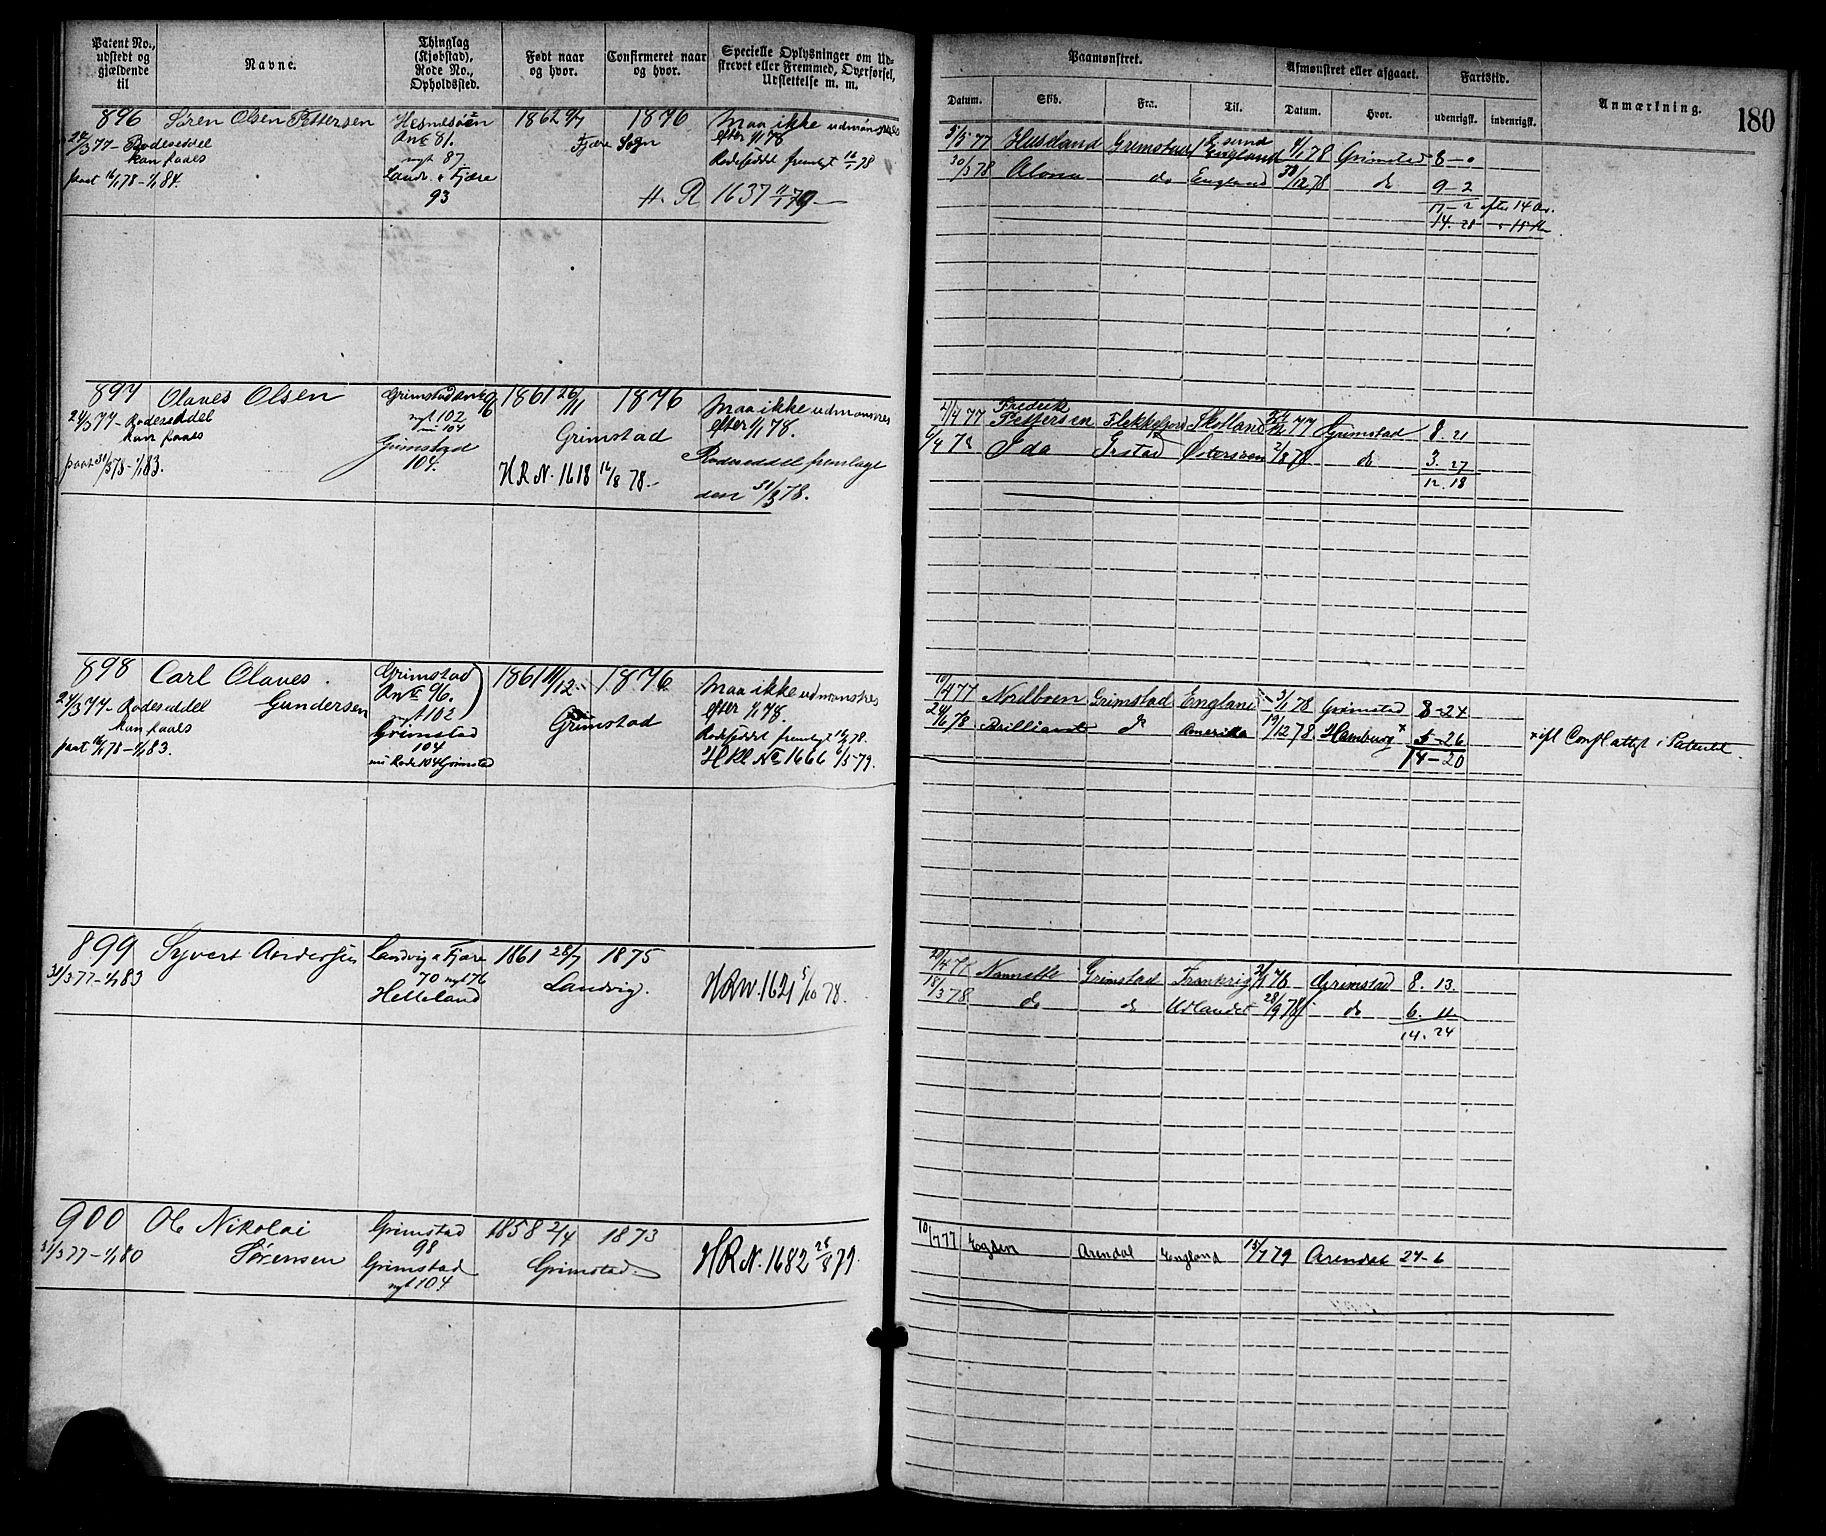 Patent No., udstedt og gjældende til
Navne.
Thinglag (Kjøbstad), Rode No., Opholdssted.
Født naar og hvor.
Confirmeret naar og hvor.
Specielle Oplysninger om Udskrevet eller Fremmed, Overførsel, Udslettelse m. m.
Paamønstret.
Afmønstret eller afgaaet.
Fartstid.
Anmærkning.
180
Datum.
Skib.
Fra.
Til.
Datum.
Hvor.
udenrigsk.
indenrigsk.
896 Søren Olsen Pettersen
24/3 77 - Rodeseddel
kan faaes
paat 16/1 78 - 1/1 84.
Hesnesøen
81.
nyt 87
Landv. & Fjære
93
1862 9/7
Fjære Sogn
1876
Maa ikke udmønstres
efter 1/1 78
Rodeseddel fremlagt
H. R 1637
5/5 77 Huseland Grimstad England 4/1 78 Grimstad 8 - 0
30/3 78 Alona do England 30/12 78 do 9 - 2
17 - 2 efter 14 Ar.
14. 28
897 Olaves Olsen
24/3 77 - Rodeseddel
kan faaes
paat 31/3 78 - 1/1 83.
Grimstad
nyt 102
104
Grimstad
104.
1861 26/11
Grimstad
1876
H R N. 1618 16/8 78.
Maa ikke udmønstres
efter 1/1 78.
Rodeseddel fremlagt
den 31/3 78.
2/4 77 Fredrik Pettersen Flekkefjord Skotland 77 Grimstad 8. 21
6/4 78 Ida Østersøen 2/8 78 do 3. 27
12. 18
898 Carl Olaves
Gundersen
24/3 77 - Rodeseddel
kan faaes
paat 16/1 78 - 1/1 83.
Grimstad
96.
nyt 102
Grimstad
104
nu Rode 104 Grimstad
1861 11/12
Grimstad
1876
Maa ikke udmønstres
efter 1/1 78.
Rodeseddel fremlagt 16/1 78.
No 1666 6/5 79.
10/4 77 Nordboen Grimstad England 3/1 78 Grimstad 8 - 24
24/1 78 Brilliant do Amerika 19/12 78 Hamburg x 5 - 26
14 - 20
x ifl Consl attest i
899 Syvert Andersen
31/3 77 - 1/1 83
Landvig & Fjære
70 nyt 76
Helleland
1861 28/7
Landvig.
1875
H R N. 1621 5/10 78.
Nannette Grimstad Frankrig Grimstad 8. 13.
18/3 78 do do Udlandet 28/9 78 do 6. 11
14. 24
900 Ole Nikolai
Sørensen
31/3 77 - 1/1 80
Grimstad
98
Grimstad
nyt 104
1858 2/4
Grimstad.
1873
H R N. 1682 28/8 79.
10/7 77 Egden Arendal England 15/7 79 Arendal 24 - 6